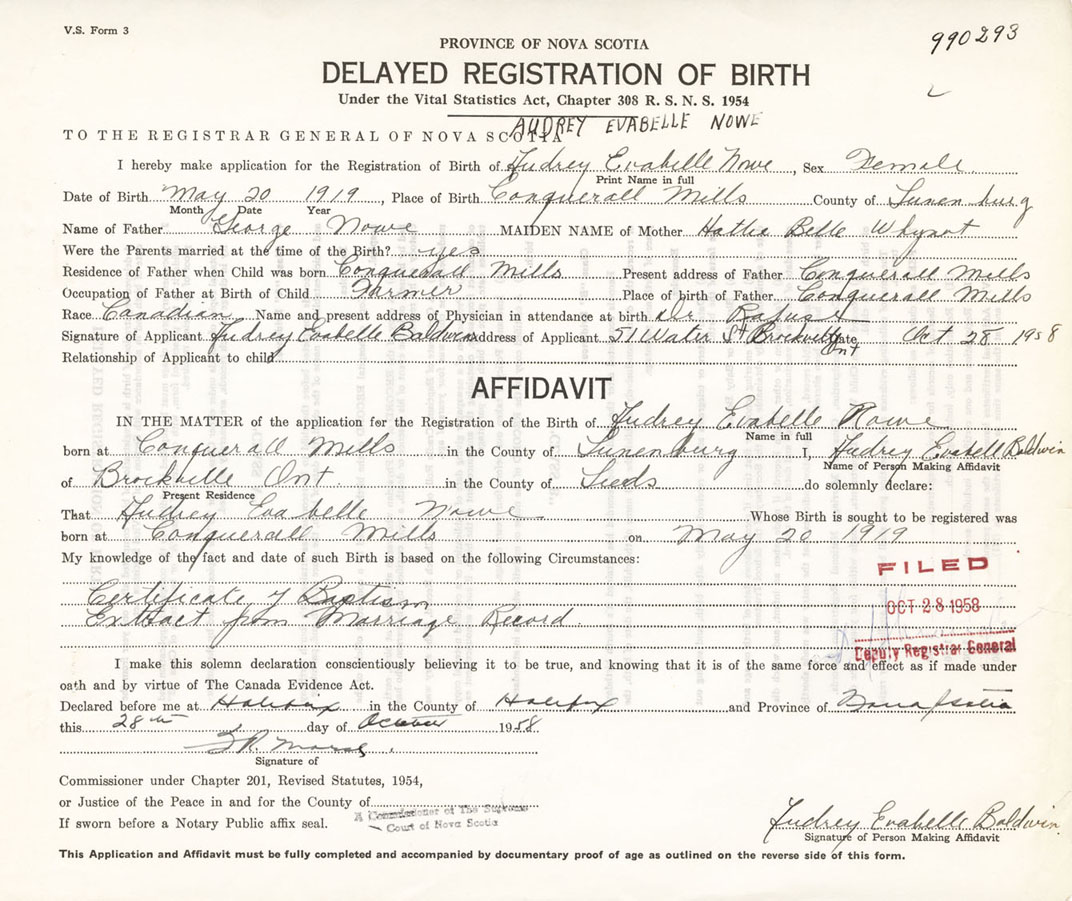 V.S. Form 3
990293
PROVINCE OF NOVA SCOTIA
DELAYED REGISTRATION OF BIRTH
Under the Vital Statistics Act, Chapter 308 R. S. N. S. 1954
AUDREY EVABELLE NOWE
TO THE REGISTRAR GENERAL OF NOVA SCOTIA
I hereby make application for the Registration of Birth of Audrey Evabelle Nowe, Sex Female.
Print Name in full
Date of Birth May 20 1919, Place of Birth Conquerall Mills County of Lunenburg
Month Date Year
Name of Father George Nowe MAIDEN NAME of Mother Hattie Belle Whynot
Were the Parents married at the time of the Birth? yes
Residence of Father when Child was born Conquerall Mills Present address of Father Conquerall Mills
Occupation of Father at Birth of Child Farmer Place of birth of Father Conquerall Mills
Race Canadian Name and present address of Physician in attendance at birth Dr Rafuse
Signature of Applicant Audrey Evabelle Baldwin Address of Applicant 51 Water St Brockville Ont Date Oct 28 1958
Relationship of Applicant to child
AFFIDAVIT
IN THE MATTER of the application for the Registration of the Birth of Audrey Evabelle Nowe
Name in full
born at Conquerall Mills in the County of Lunenburg I, Audrey Evabell Baldwin
Name of Person Making Affidavit
of Brockville Ont. in the County of Leeds do solemnly declare:
Present Residence
That Audrey Evabelle Nowe Whose Birth is sought to be registered was
born at Conquerall Mills on May 20 1919
My knowledge of the fact and date of such Birth is based on the following Circumstances:
FILED
Certificate of Baptism
OCT 28 1958
Extract from Marriage Record.
Deputy Registrar General
I make this solemn declaration conscientiously believing it to be true, and knowing that it is of the same force and effect as if made under
oath and by virtue of The Canada Evidence Act.
Declared before me at Halifax in the County of Halifax and Province of Nova Scotia
this 28th day of October 1958
Signature of
Commissioner under Chapter 201, Revised Statutes, 1954,
or Justice of the Peace in and for the County of
A Commissioner of The Supreme
Court of Nova Scotia
If sworn before a Notary Public affix seal.
Audrey Evabelle Baldwin
Signature of Person Making Affidavit
This Application and Affidavit must be fully completed and accompanied by documentary proof of age as outlined on the reverse side of this form.